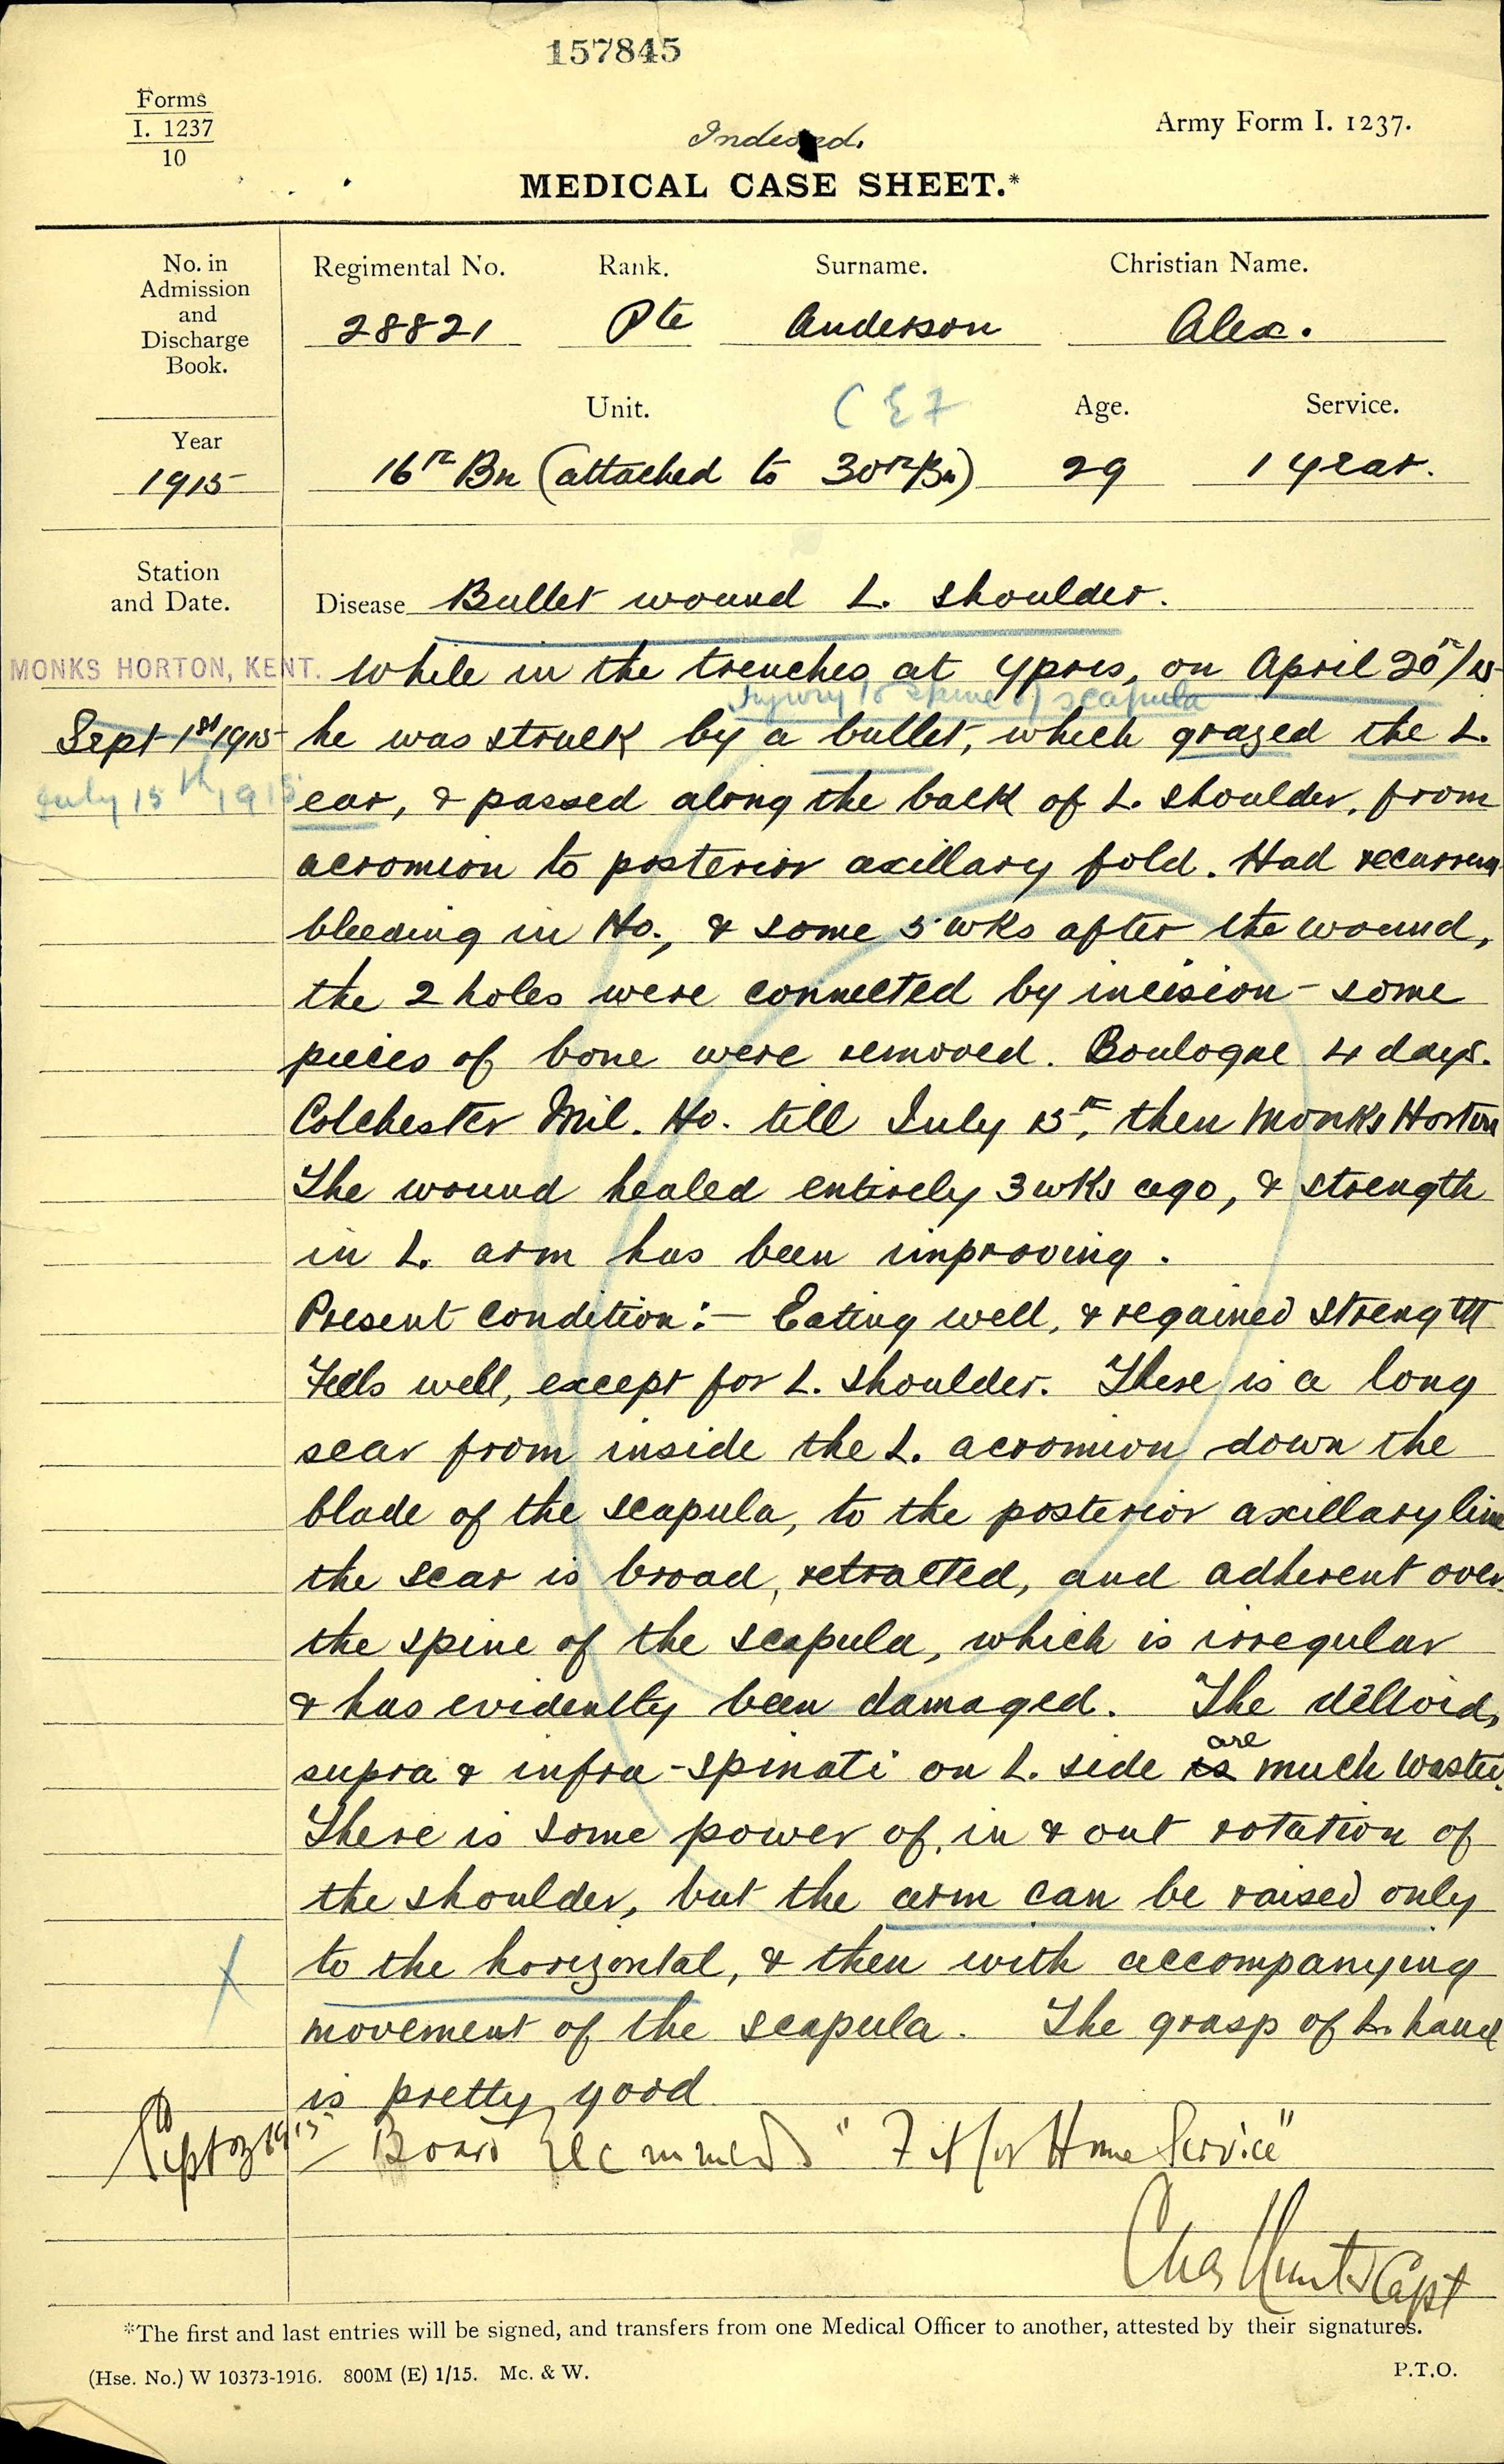 157845
Forms
I. 1237
10
Indexed.
Army Form I. 1237.
MEDICAL CASE SHEET.*
No. in Admission and Discharge Book.
Regimental No. Rank. Surname. Christian Name.
28821 Pte Anderson Alex.
Unit. CEF Age. Service.
Year
1915 16th Bn (attached to 30th Bn) 29 1 year.
Station and Date.
Disease Bullet wound L. shoulder.
MONKS HORTON, KENT. While in the trenches at Ypres, on April 20th/15
Injury to spine of scapula
Sept 1st 1915 he was struck by a bullet, which grazed the L.
July 15th 1915 ear, & passed along the back of L. shoulder, from
acromion to posterior axillary fold. Had recurrent
bleeding in Ho., & some 5 wks after the wound,
the 2 holes were connected by incision - some
pieces of bone were removed. Boulogne 4 days.
Colchester Mil. Ho. till July 15th, then Monks Horton
The wound healed entirely 3 wks ago, & strength
in L. arm has been improving.
Present condition:- Eating well, & regained strength
Feels well, except for L. shoulder. There is a long
scar from inside the L. acromion down the
blade of the scapula, to the posterior axillary line
the scar is broad, retracted, and adherent over
the spine of the scapula, which is irregular
& has evidently been damaged. The deltoid,
supra & infra-spinati on L. side is are much wasted.
There is some power of in & out rotation of
the shoulder, but the arm can be raised only
to the horizontal, & then with accompanying
X
movement of the scapula. The grasp of L. hand
is pretty good
Sept 1915 - Board Recommends "Fit for Home Service"
Chas Hunter Capt
*The first and last entries will be signed, and transfers from one Medical Officer to another, attested by their signatures.
(Hse. No.) W 10373-1916. 800M (E) 1/15. Mc. & W. P.T.O.